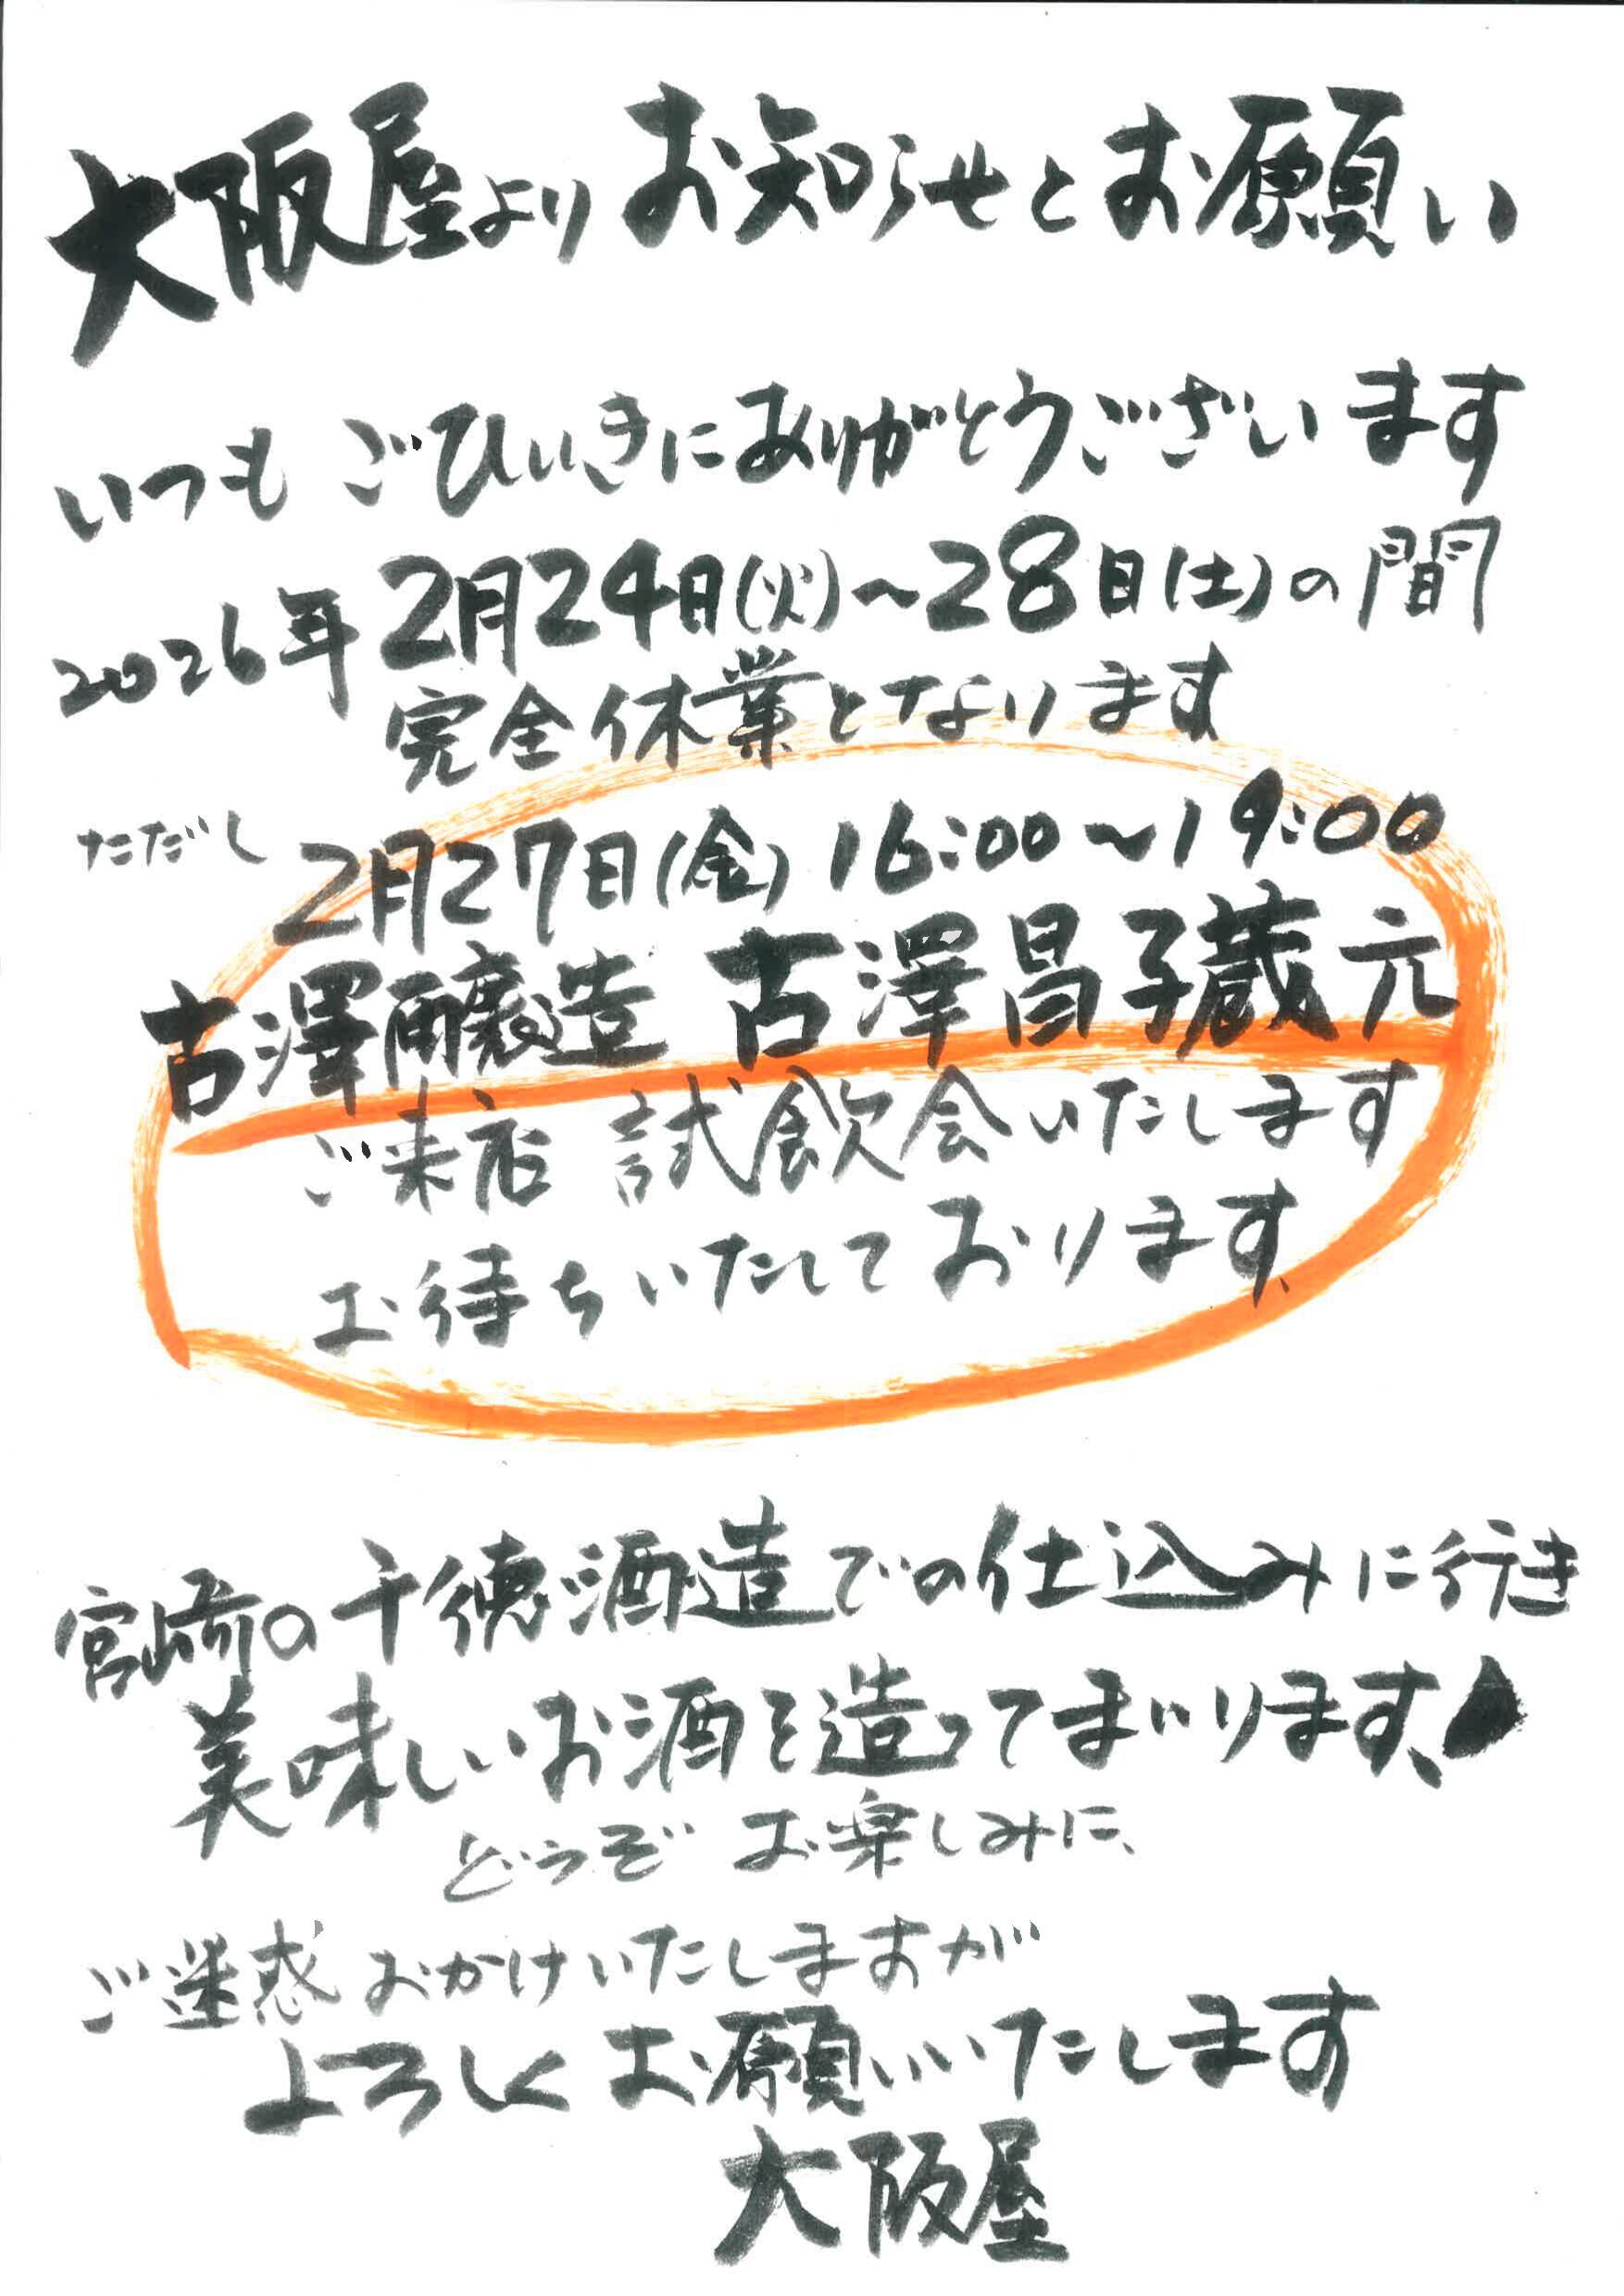 大阪屋よりお知らせとお願い
いつもごひいきにありがとうございます
2026年2月24日(火)～28日(土)の間
完全休業となります
ただし 2月27日(金) 16:00～19:00
古澤醸造 古澤昌子蔵元
ご来店 試飲会いたします
お待ちいたしております。
宮崎の千徳酒造での仕込みに行き
美味しいお酒を造ってまいります。
どうぞお楽しみに、
ご迷惑おかけいたしますが
よろしくお願いいたします
大阪屋